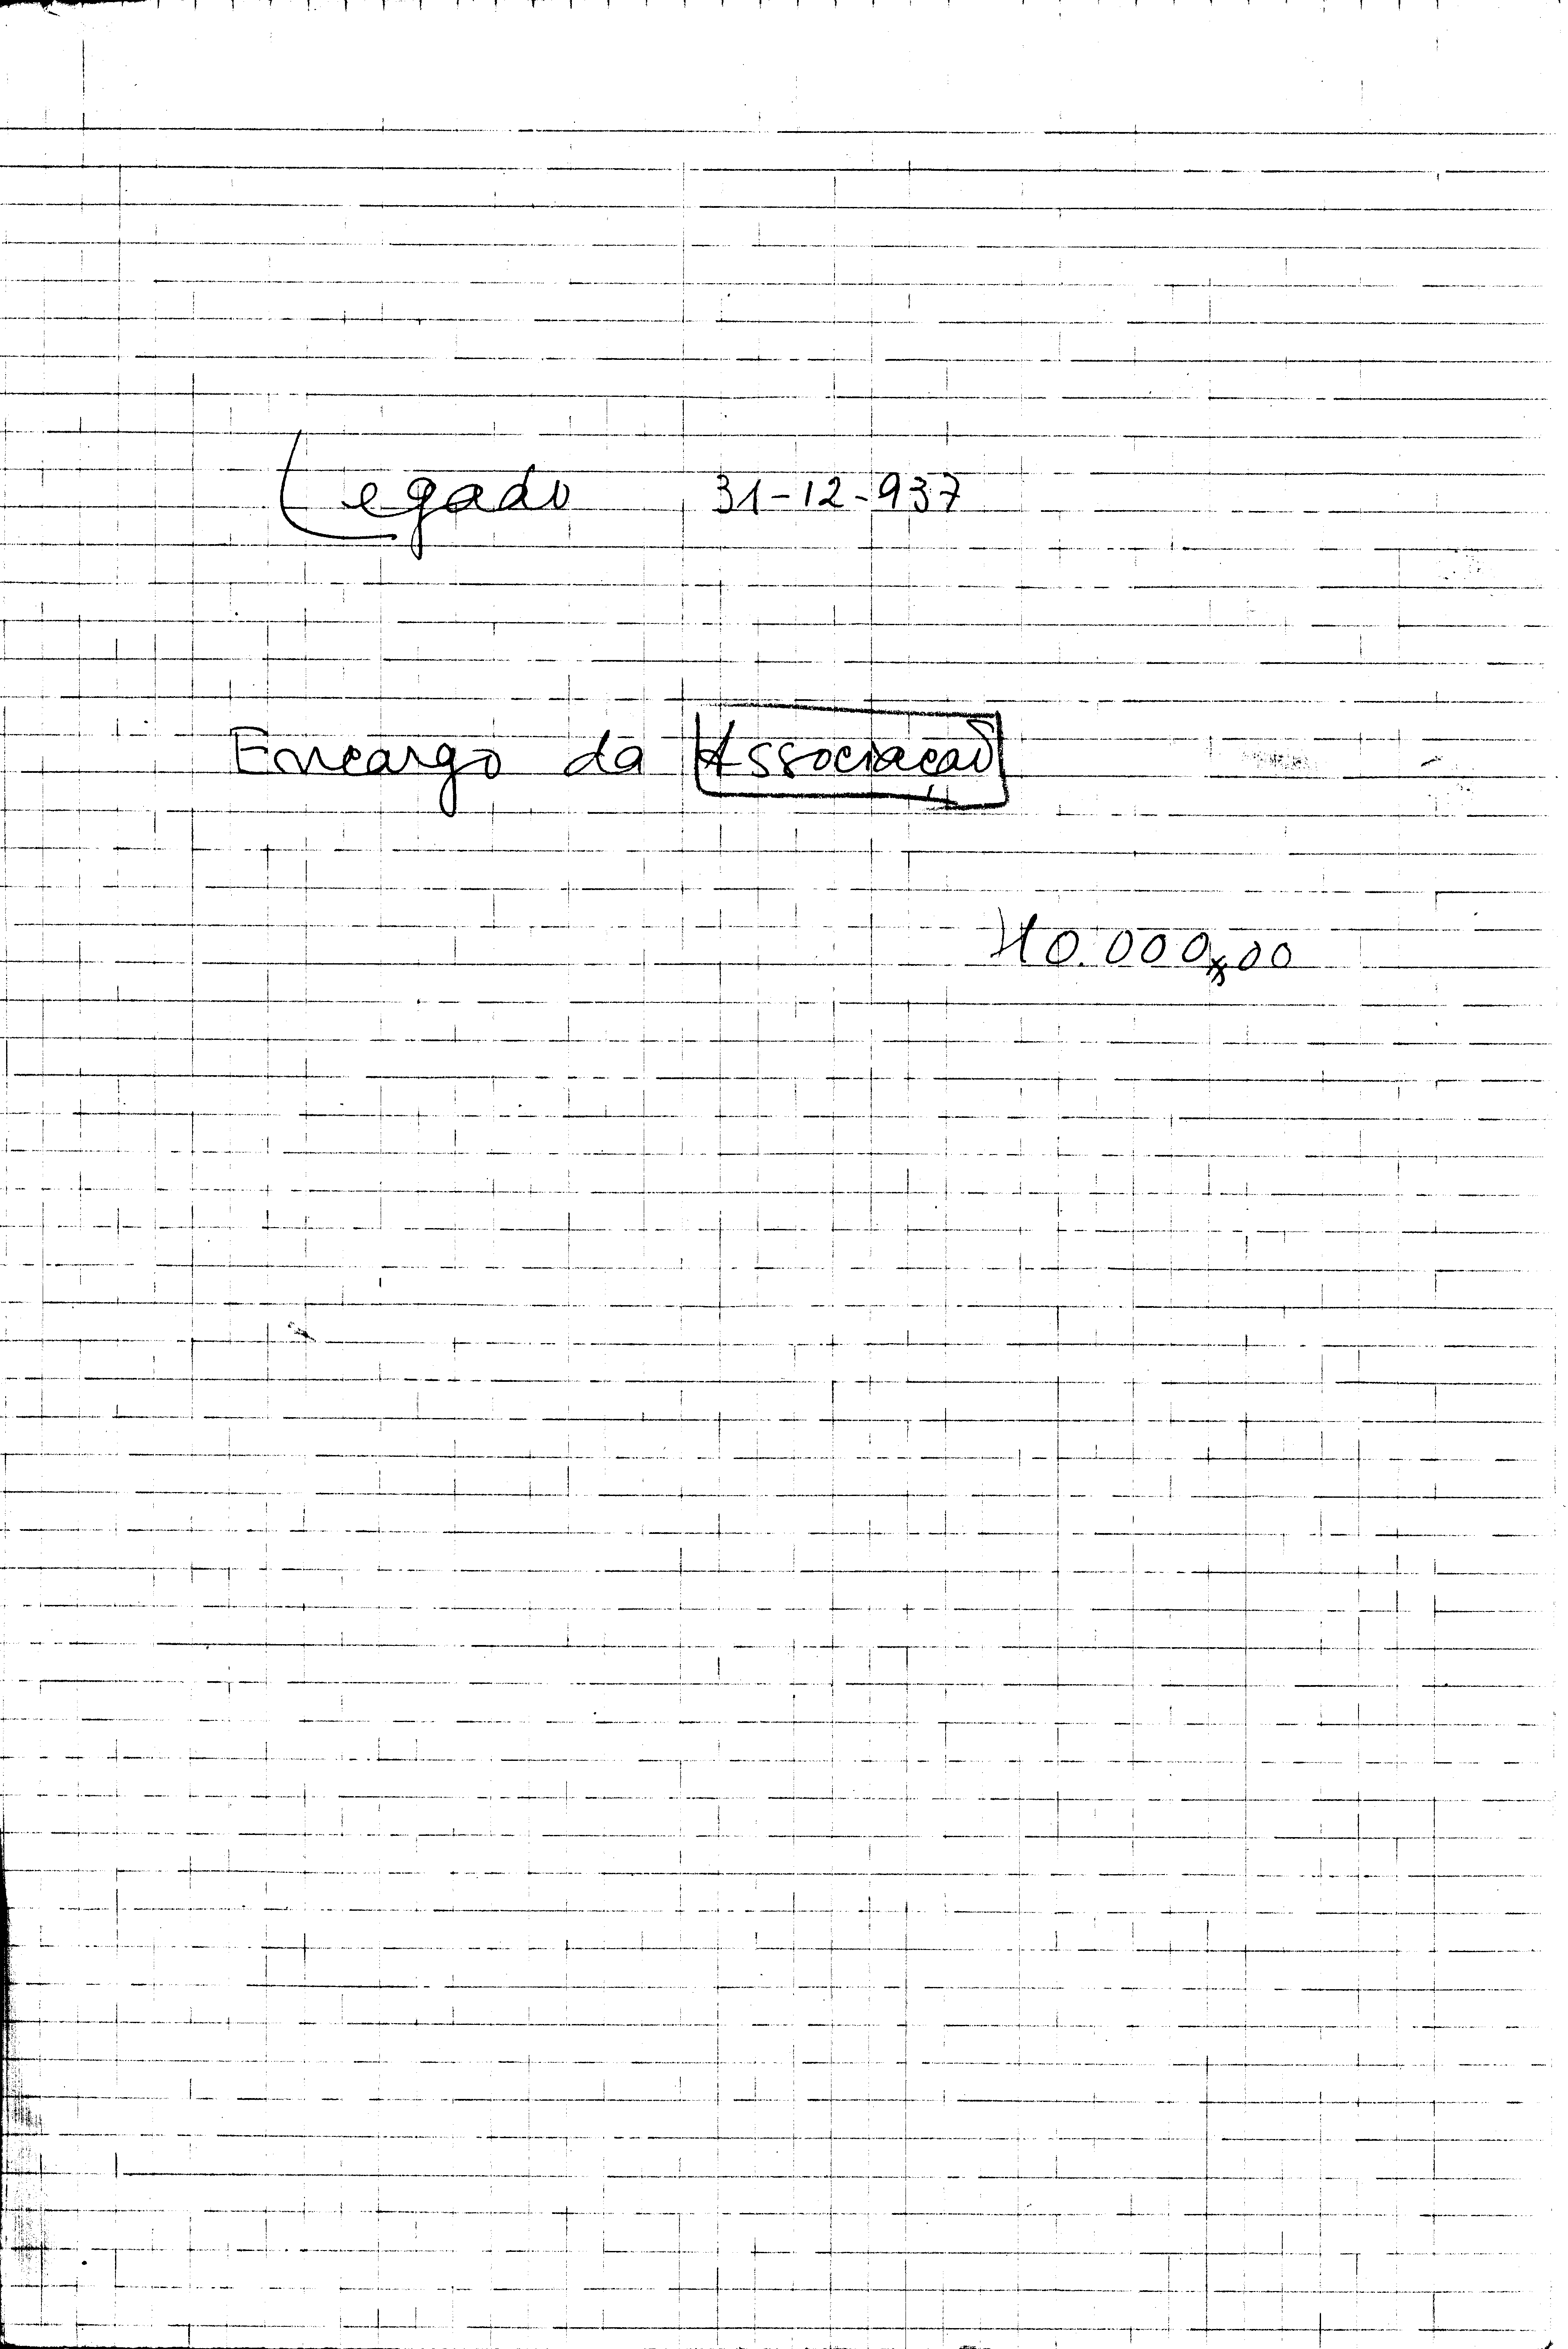 Legado 31-12-937
Encargo da Associação
10.000$00